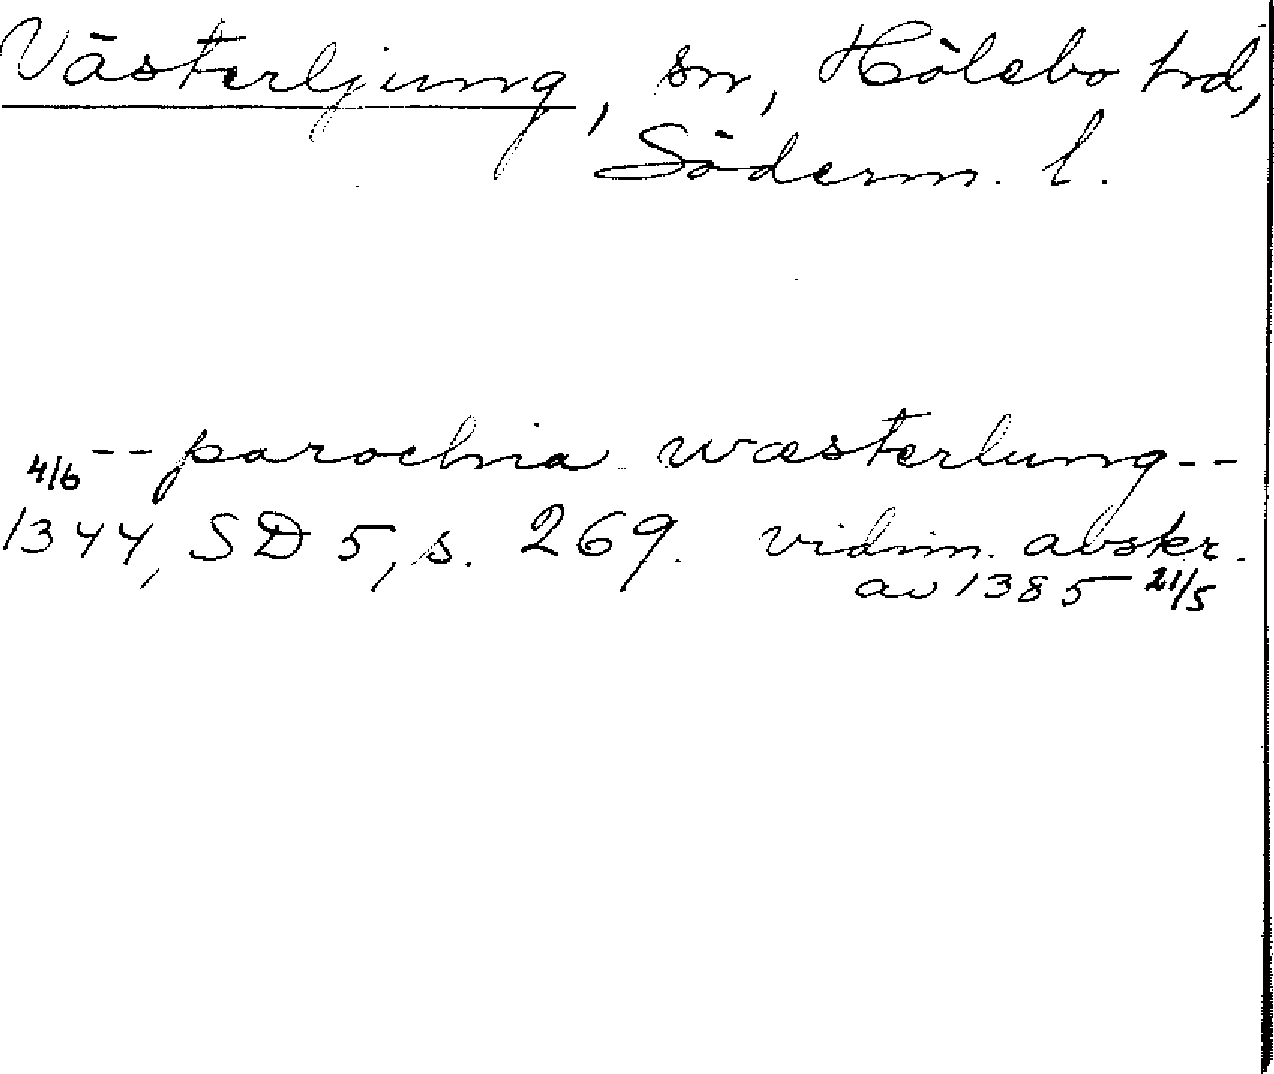 Västerljung, sn, Hölebo hd,
Söderm. l.
4/6 -- parochia wæsterlung --
1344, SD 5, s. 269. vidim. avskr.
av 1385 21/5